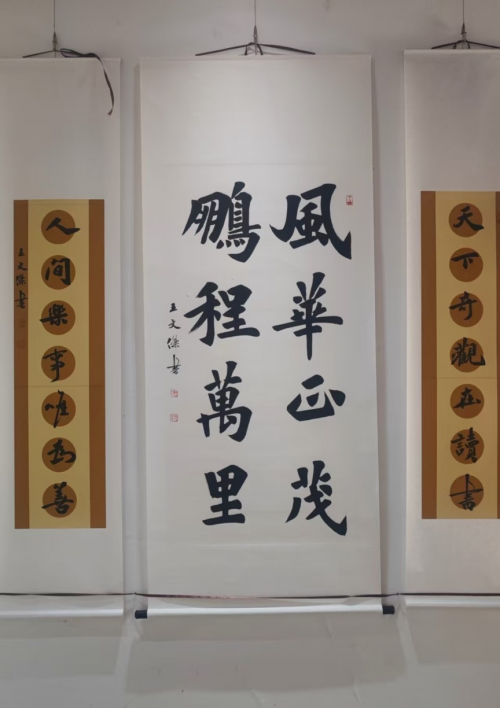 天下奇觀在讀書
風華正茂
鵬程萬里
王文傑書
人間樂事唯為善
王文傑書